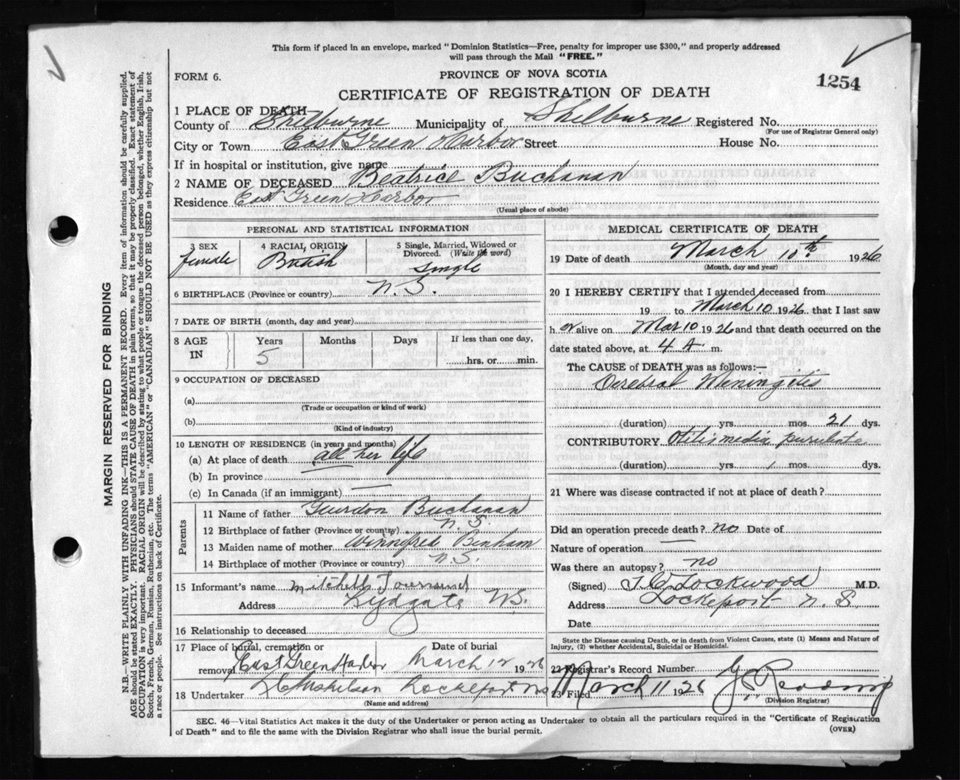 This form if placed in an envelope, marked "Dominion Statistics—Free, penalty for improper use $300," and properly addressed
will pass through the Mail "FREE."
FORM 6.
PROVINCE OF NOVA SCOTIA
1254
CERTIFICATE OF REGISTRATION OF DEATH
1 PLACE OF DEATH
County of Shelburne Municipality of Shelburne Registered No.
(For use of Registrar General only)
City or Town East Green Harbor Street House No.
If in hospital or institution, give name
2 NAME OF DECEASED Beatrice Buchanan
Residence East Green Harbor
(Usual place of abode)
PERSONAL AND STATISTICAL INFORMATION
3 SEX female
4 RACIAL ORIGIN British
5 Single, Married, Widowed or Divorced. (Write the word) Single
6 BIRTHPLACE (Province or country) N.S.
7 DATE OF BIRTH (month, day and year)
8 AGE IN
Years Months Days If less than one day,
5 hrs. or min.
9 OCCUPATION OF DECEASED
(a)
(Trade or occupation or kind of work)
(b)
(Kind of industry)
10 LENGTH OF RESIDENCE (in years and months)
(a) At place of death all her life
(b) In province —
(c) In Canada (if an immigrant) —
Parents
11 Name of father Buchanan
12 Birthplace of father (Province or country) N.S
13 Maiden name of mother
14 Birthplace of mother (Province or country) N.S.
15 Informant's name Mitchell Townsend
Address Lydgate N.S.
16 Relationship to deceased
17 Place of burial, cremation or removal East Green Harbor
Date of burial March 12 1926
18 Undertaker Lockeport N.S
(Name and address)
MEDICAL CERTIFICATE OF DEATH
19 Date of death March 10th 1926
(Month, day and year)
20 I HEREBY CERTIFY that I attended deceased from
19 to March 10 1926, that I last saw
h er alive on Mar 10 1926 and that death occurred on the
date stated above, at 4 A m.
The CAUSE of DEATH was as follows:—
Cerebral Meningitis
(duration) yrs. mos. 21 dys.
CONTRIBUTORY Otitis media
(duration) yrs. 1 mos. dys.
21 Where was disease contracted if not at place of death?
Did an operation precede death? no Date of
Nature of operation —
Was there an autopsy? no
(Signed) Lockwood M.D.
Address Lockeport N.S
Date
State the Disease causing Death, or in death from Violent Causes, state (1) Means and Nature of
Injury, (2) whether Accidental, Suicidal or Homicidal.
22 Registrar's Record Number
23 Filed March 11 1926
(Division Registrar)
SEC. 46—Vital Statistics Act makes it the duty of the Undertaker or person acting as Undertaker to obtain all the particulars required in the "Certificate of Registration
of Death" and to file the same with the Division Registrar who shall issue the burial permit.
(OVER)
MARGIN RESERVED FOR BINDING
N.B.—WRITE PLAINLY WITH UNFADING INK—THIS IS A PERMANENT RECORD. Every item of information should be carefully supplied.
AGE should be stated EXACTLY. PHYSICIANS should STATE CAUSE OF DEATH in plain terms, so that it may be properly classified. Exact statement of
OCCUPATION is very important. RACIAL ORIGIN will be described by stating to what people or tongue the deceased person belonged, whether English, Irish,
Scotch, French, German, Russian, Ruthenian, etc. The terms "AMERICAN" or "CANADIAN" SHOULD NOT BE USED as they express citizenship but not
a race or people. See instructions on back of Certificate.